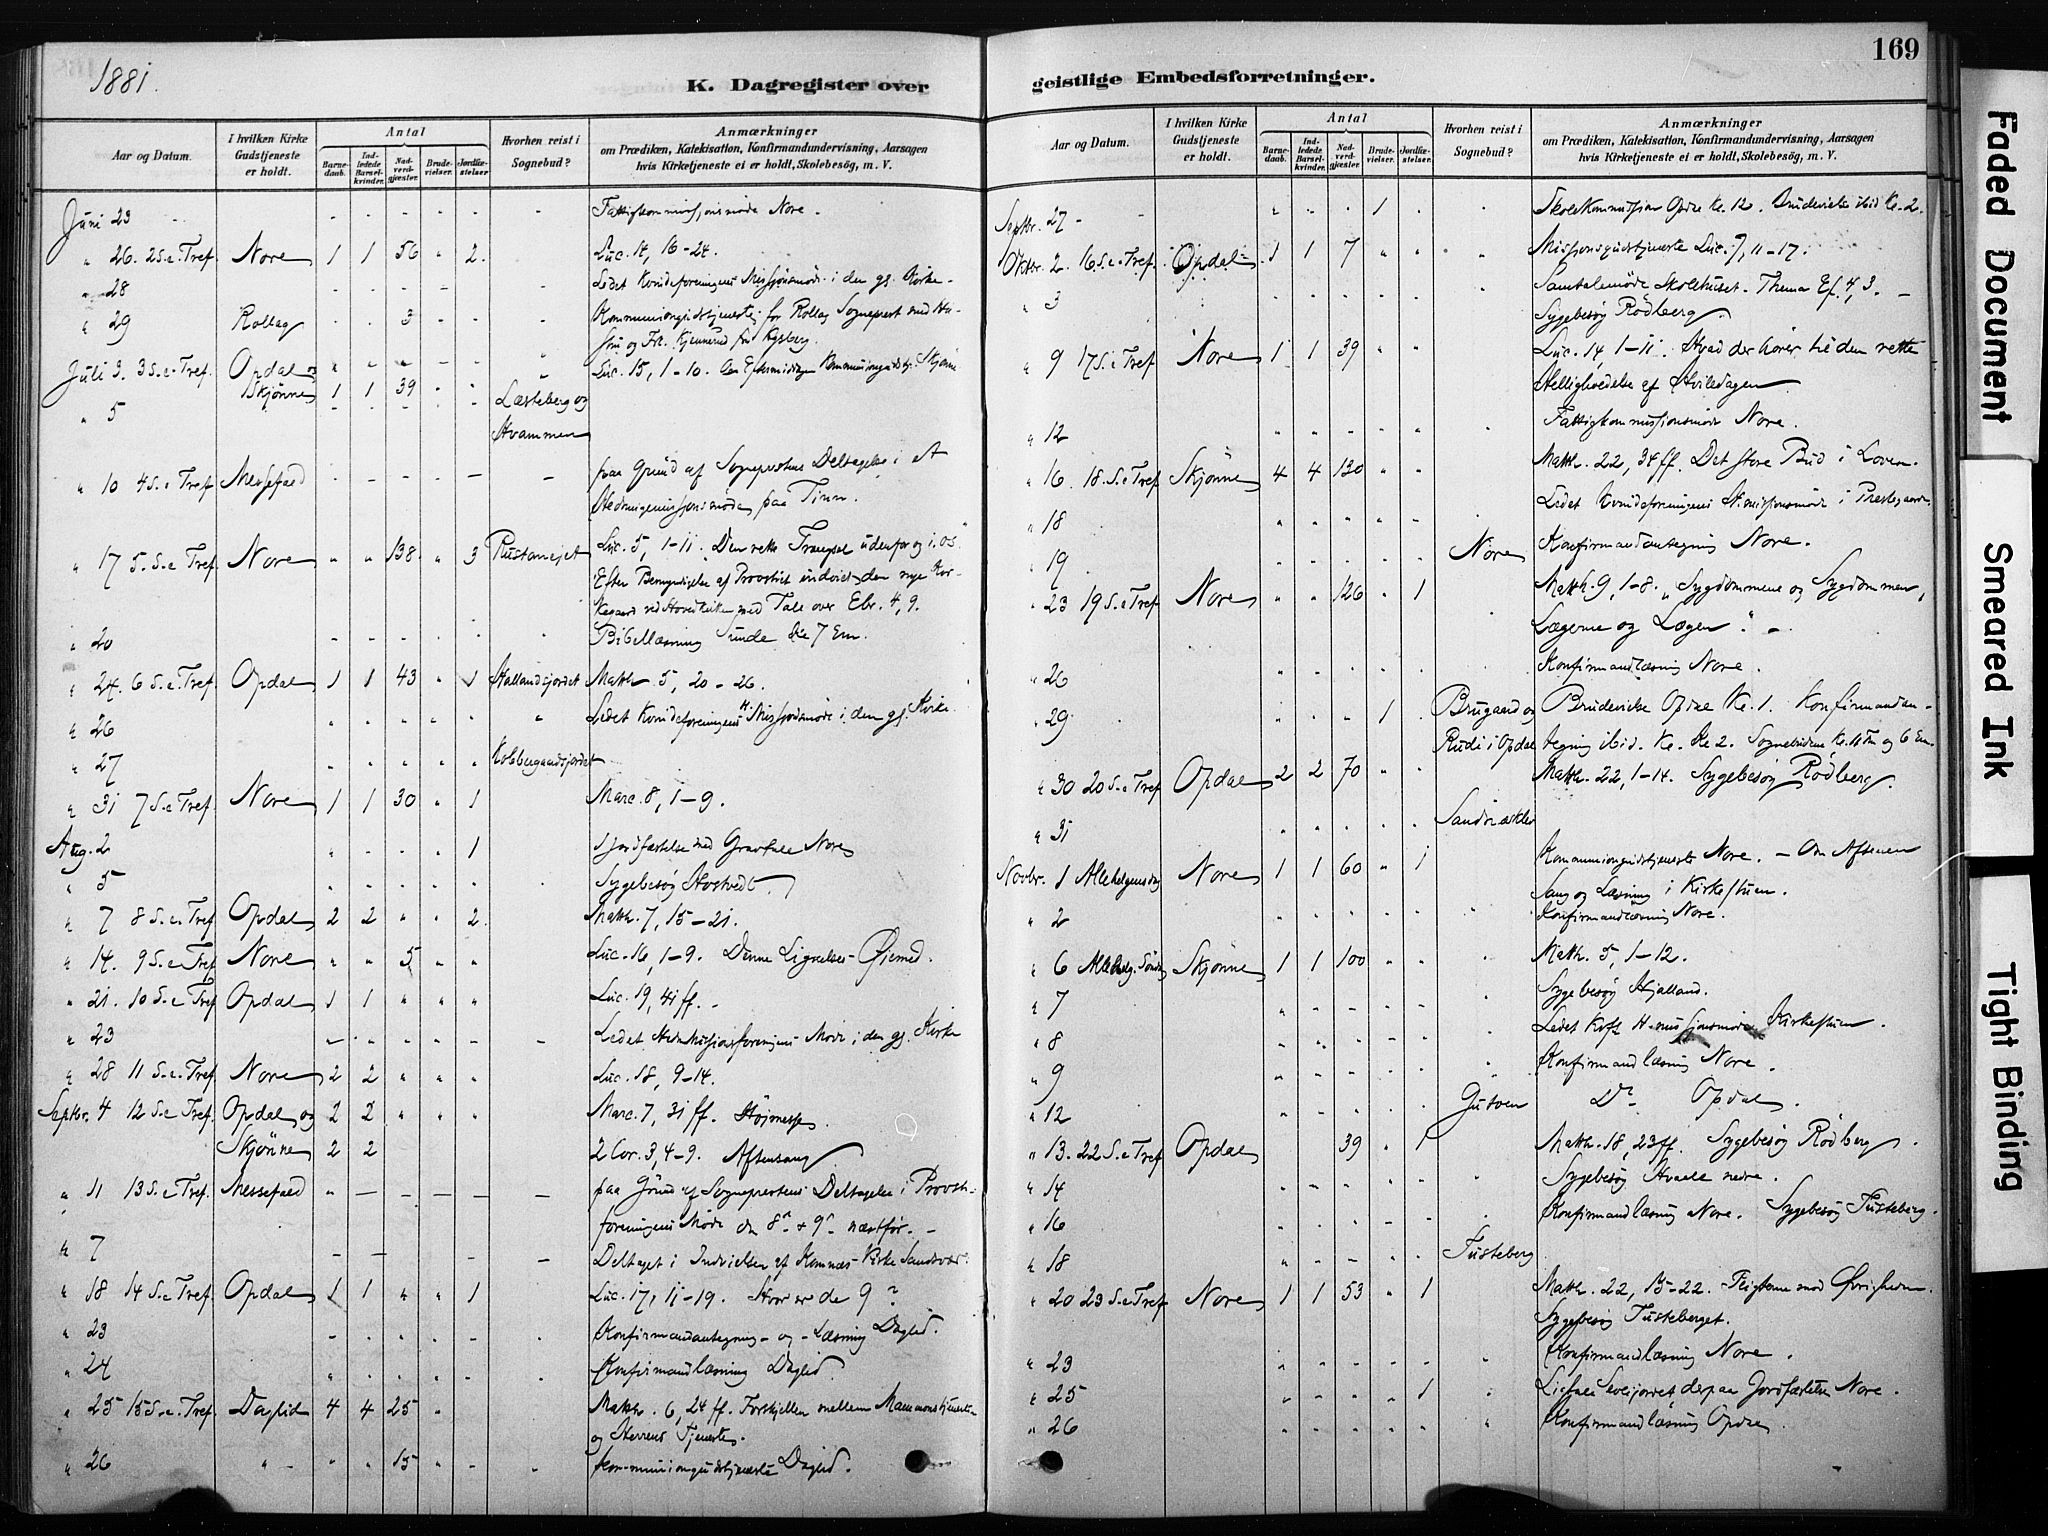 169
1881.
K. Dagregister over
geistlige Embedsforretninger.
Aar og Datum.
I hvilken Kirke Gudstjeneste er holdt.
Antal
Barnedaab.
Indledede Barselkvinder.
Nadverdgjæster.
Brudevielser.
Jordfæstelser
Hvorhen reist i Sognebud?
Anmærkninger
om Prædiken, Katekisation, Konfirmandundervisning, Aarsagen
hvis Kirketjeneste ei er holdt, Skolebesög, m. V.
Juni 23 Fattigkommissionsmøde Nore.
" 26. 2 S. e. Tref. Nore 1 1 56 " 2. Luc. 14, 16-24.
" 28 Ledet Kvindeforeningens Missionsmøde i den gl. Kirke.
" 29 Rollag 3 Kommuniongudstjeneste for Rollag Sognepræst med
Juli 3. 3 S. e. Tref. Opdal og Luc. 15, 1-10. Om Eftermiddagen Kommuniongudstj. Skjønne
Skjønne 1 1 39
" 5 Læsteberg og
Hvammen
" 10 4 S. e. Tref. Messefald paa Grund af Sognepræstens Deltagelse i et
Hedningemissionsmøde paa Tinn.
" 17 5. S. e. Tref. Nore " " 138 " 3 Rustanejet Luc. 5, 1-11. Den rette Trængsel udenfor og i os.
Efter Bemyndigelse af Provstiet indviet den nye Kir-
kegaard ved Hovedkirken med Tale over Ebr. 4, 9.
" 20 Bibellæsning Sunde Kl. 7 Em.
" 24. 6 S. e. Tref. Opdal 1 1 43 " 1 Hallandsjordet Matth. 5, 20-26.
" 26 Ledet Kvindeforeningens H. Missionsmøde i den gl. Kirke.
" 27 Kobbergaardsjordet
" 31 7 S. e. Tref. Nore 1 1 30 " 1 Marc. 8, 1-9.
Aug. 2 1 1 Jordfæstelse med Gravtale Nore
" 5 Sygebesøg Hostvedt.
" 7 8 S. e. Tref. Opdal 2 2 " " 2. Matth. 7, 15-21.
" 14. 9 S. e. Tref. Nore " " 5 " " Luc. 16, 1-9. Denne Lignelses Øiemed.
" 21. 10 S. e. Tref. Opdal 1 1 " " " Luc. 19, 41 ff.
" 23 Ledet Hedn. Missionsforenings Møde i den gl. Kirke
" 28 11 S. e. Tref. Nore 2 2 " " " Luc. 18, 9-14.
Septbr. 4 12 S. e. Tref. Opdal og 2 2 " " " Marc. 7, 31 ff. Høimesse.
Skjønne 2 2 2 Cor. 3, 4-9. Aftensang
" 11 13 S. e. Tref. Messefald " paa Grund af Sognepræstens Deltagelse i Provsti-
foreningens Møde den 8n + 9n næstfør.
" 7 Deltaget i Indvielsen af Komnæs Kirke Sandsvær.
" 18 14 S. e. Tref. Opdal 1 1 " " 1 Luc. 17, 11-19. Hvor er de 9?
" 23 Konfirmandantegning og -Læsning Daglid.
" 24 Konfirmandlæsning Daglid.
" 25 15 S. e. Tref. Daglid 4 4 25 " Matth. 6, 24 ff. Forskjellen mellem Mammons Tjeneste
og Herrens Tjeneste.
" 26 " 15 Kommuniongudstjeneste Daglid.
Aar og Datum.
I hvilken Kirke Gudstjeneste er holdt.
Antal
Barnedaab.
Indledede Barselkvinder.
Nadverdgjæster.
Brudevielser.
Jordfæstelser.
Hvorhen reist i Sognebud?
Anmærkninger
om Prædiken, Katekisation, Konfirmandundervisning, Aarsagen
hvis Kirketjeneste ei er holdt, Skolebesög, m. V.
Septbr. 27 1 Skolekommission Opdal Kl. 12. Brudevielse ibid Kl. 2.
Oktbr. 2. 16 S. e. Tref. Opdal 1 1 7 " " Missionsgudstjeneste Luc. 7, 11-17.
" 3 Samtalemøde Skolehuset. Thema Ef. 4, 3.
Sygebesøg Rødberg.
" 9 17 S. e. Tref. Nore 1 1 39 " " Luc. 14, 1-11. Hvad der hører til den rette
Helligholdelse af Hviledagen
" 12 Fattigkommissionsmøde Nore.
" 16 18. S. e. Tref. Skjønne 4 4 130 " " Matth. 22, 34 ff. Det store Bud i Loven.
" 18 Ledet Kvindeforeningens H.missionsmøde i Prestegaarden.
" 19 Nore Konfirmandantegning Nore.
" 23 19 S. e. Tref. Nore " " 126 " 1 Matth. 9, 1-8. "Sygdommene og Sygdommen,
Lægerne og Lægen".
" 26 Konfirmandlæsning Nore.
" 29 1 Brugaard og Brudevielse Opdal Kl. 1. Konfirmandan-
Rudi i Opdal tegning ibid. Kl. 2. Sognebudene Kl. 11 Fm og 6 Em.
" 30 20 S. e. Tref. Opdal 2 2 70 " " Matth. 22, 1-14. Sygebesøg Rødberg.
" 31
Novbr. 1 Allehelgensdag Nore 1 1 60 " 1 Kommuniongudstjeneste Nore. - Om Aftenen
Sang og Læsning i Kirkestuen.
" 2 Konfirmandlæsning Nore.
" 6 Allehelg. Søndag Skjønne 1 1 100 " " Matth. 5, 1-12.
" 7 Sygebesøg Hjalland.
" 8 Ledet Kvf. H.missionsmøde Kirkestuen.
" 9 Konfirmandlæsning Nore.
" 12 Gutven Do Opdal.
" 13. 22 S. e. Tref. Opdal 39 " 1 Matth. 18, 23 ff. Sygebesøg Rødberg.
" 14 Sygebesøg Hvaale nedre.
" 16 Konfirmandlæsning Nore. Sygebesøg Tusteberg.
" 18 Tusteberg
" 20 23 S. e. Tref. Nore 1 1 53 " 1 Matth. 22, 15-22. Pligterne mod Øvrigheden.
Sygebesøg Tusteberget.
" 23 Konfirmandlæsning Nore.
" 25 1 Ligtale derpaa Jordfæstelse Nore.
" 26 Konfirmandlæsning Opdal
Faded Document
Smeared Ink
Tight Binding